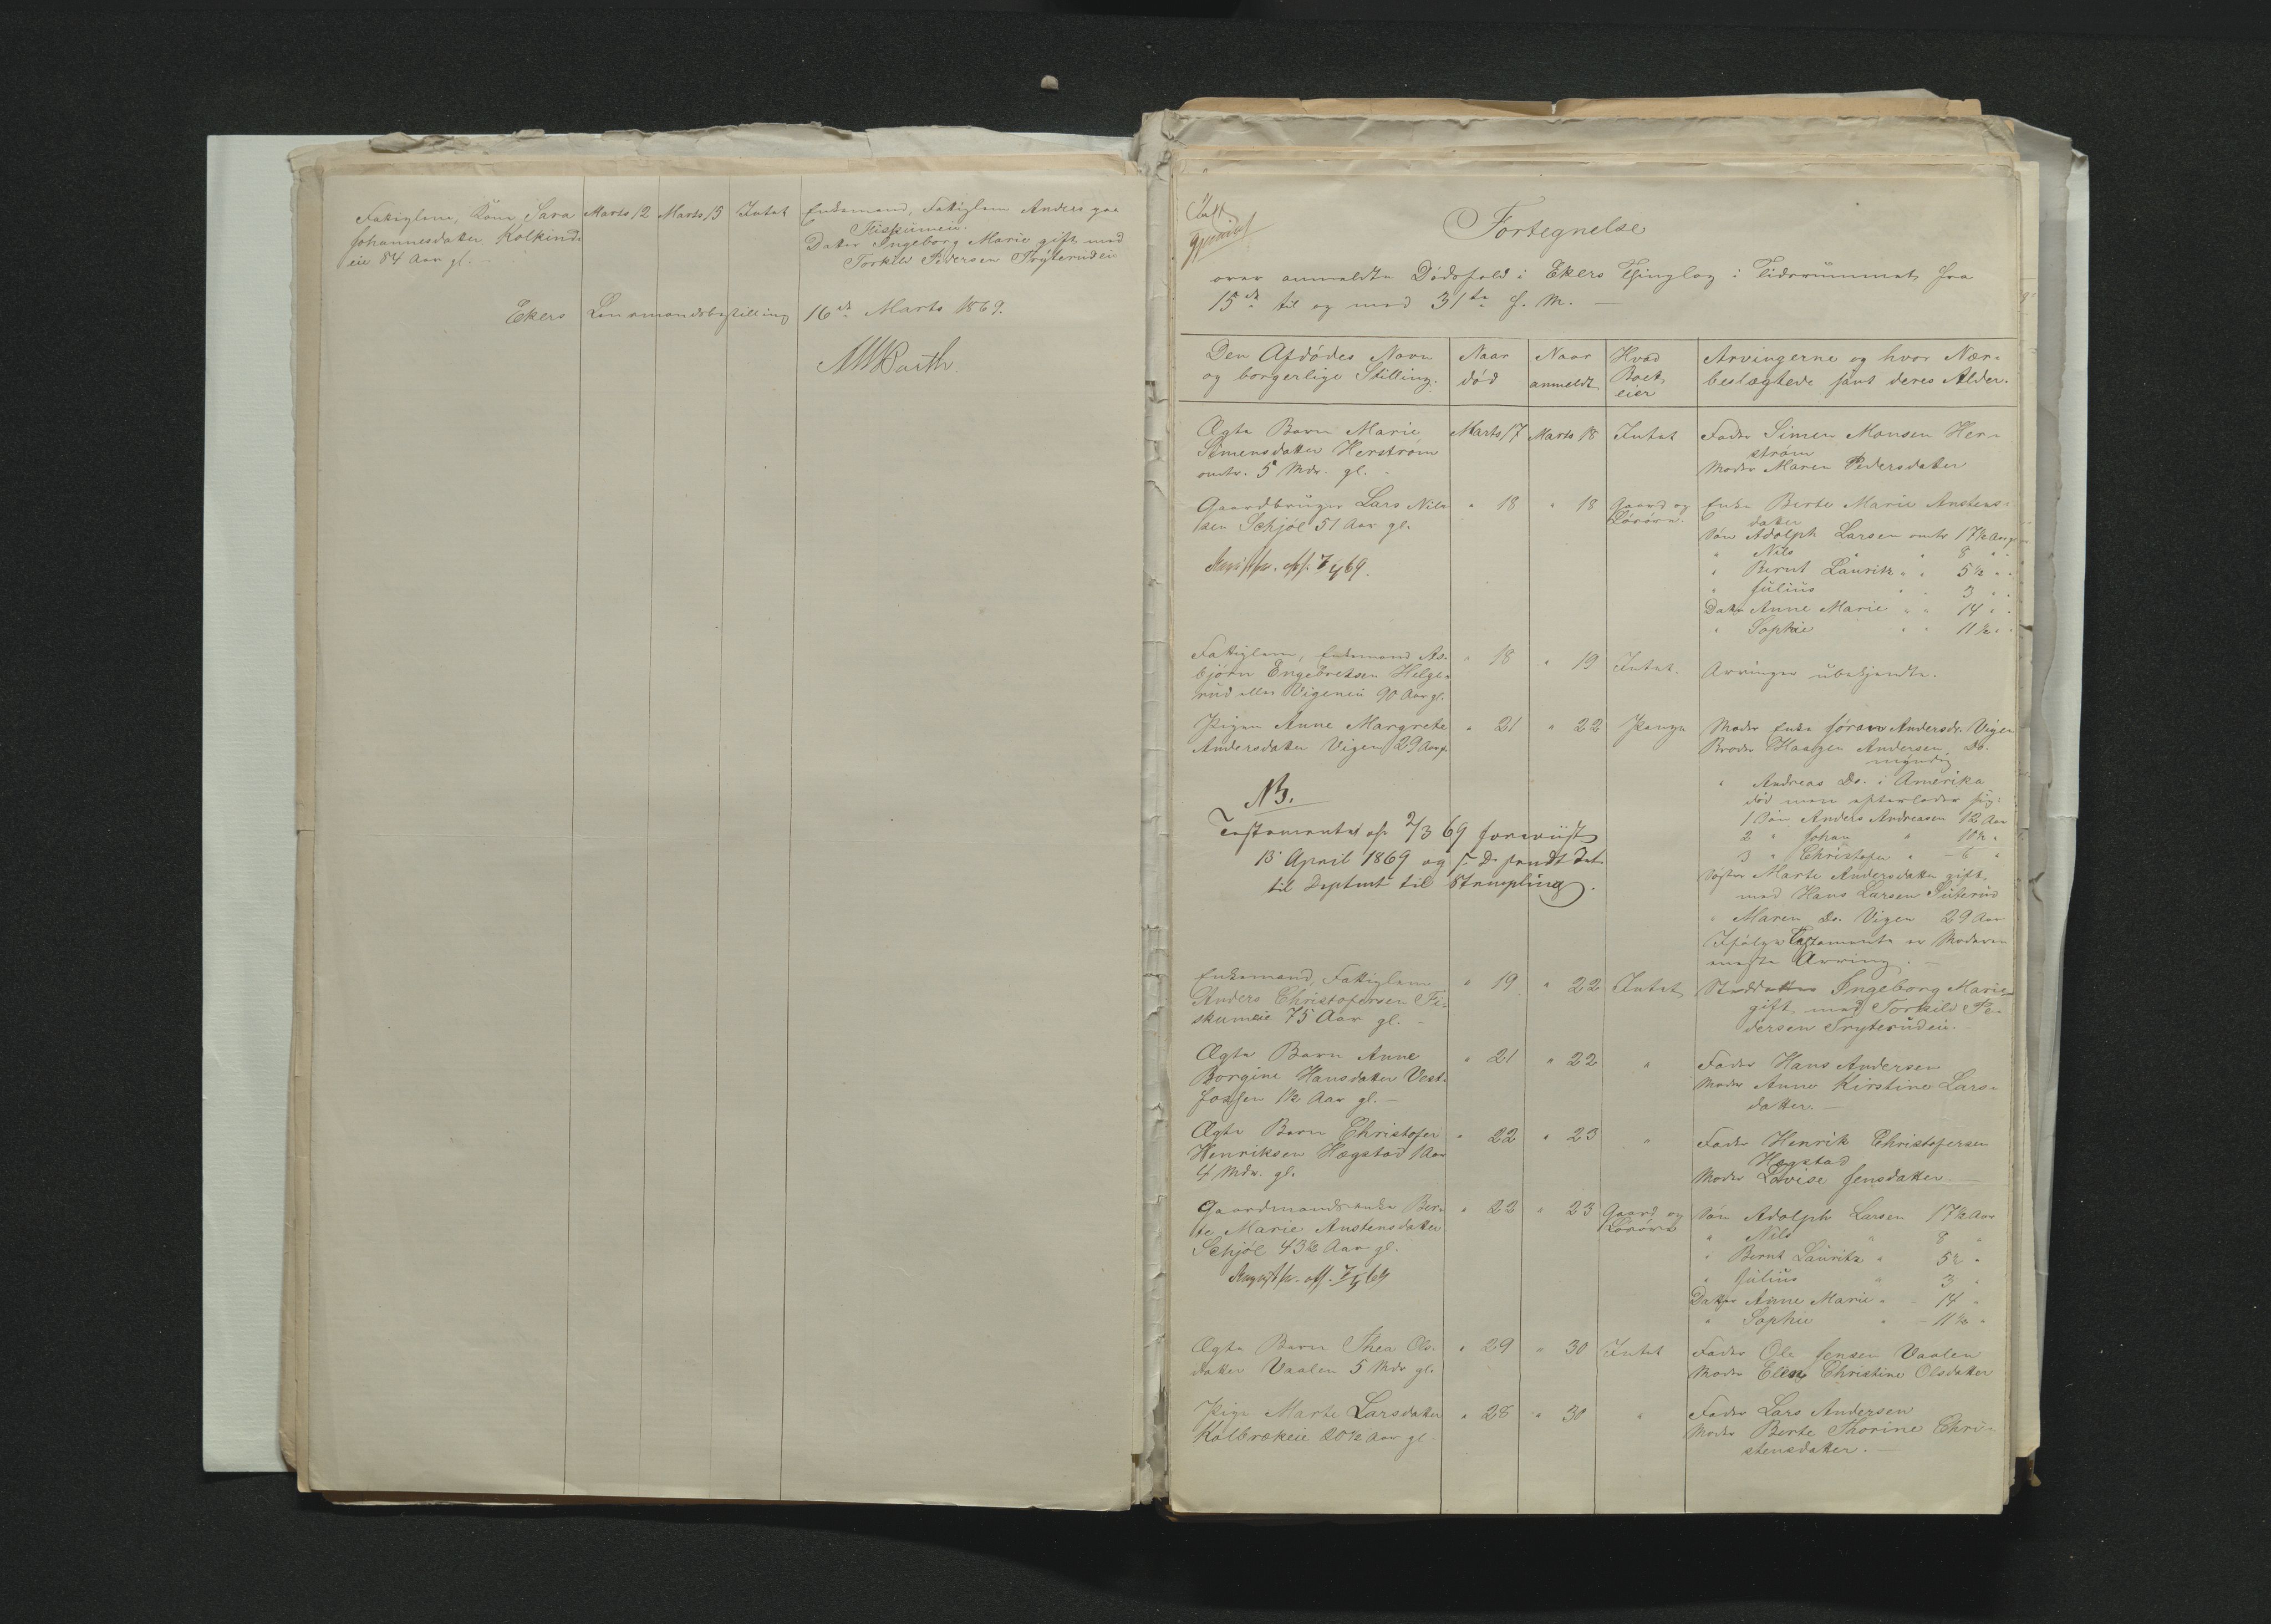 Fattiglem, Kone Sara Marts 12 Marts 15 Intet Enkemand, Fattiglem Anders paa
Johannesdatter Kolkinds- Fiskumeie.
eie 84 Aar gl. Datter Ingeborg Marie gift med
Torkild Pedersen Tryterudeie
Ekers Lensmandsbestilling 16de Marts 1869.
Barth.
Fortegnelse
over anmeldte Dødsfald i Ekers Thinglag i Tidsrummet fra
15de til og med 31te f. M. —
Den Afdødes Navn Naar Naar Hvad Arvingerne og hvor Nær-
og borgerlige Stilling. død anmeldt. Boet beslægtede samt deres Alder.
eier
Ægte Barn Marie Marts 17 Marts 18 Intet Fader Simen Monsen Her-
Simensdatter Herstrøm strøm
omtr. 5 Mdr. gl. Moder Maren Pedersdatter
Gaardbruger Lars Nils- " 18 " 18 Gaard og Enke Berte Marie Anstens-
sen Schjøl 51 Aar gl. Løsøre. datter
Søn Adolph Larsen omtr 17½ Aar gl
" Nils " " 8 " "
" Bernt Lauritz " " 5½ " "
" Julius " " 3 " "
Datter Anne Marie " " 14 " "
" Sophie " " 11½ " "
Fattiglem, Enkemand As- " 18 " 19 Intet. Arvinger ubekjendte.
bjørn Engebretsen Helge-
rud eller Vigeneie 90 Aar gl.
Pigen Anne Margrete " 21 " 22 Penge Moder Enke Jøran Andersdr. Vigen
Andersdatter Vigen 29 Aar gl. Broder Haagen Andersen Do.
myndig
" Andreas Do. i Amerika
død men efterlader sig:
1 Søn Anders Andreasen 12 Aar
2 " Johan " 10½ "
3 " Christofer " 6 "
NB.
Testamentet af 2/3 69 foreviist
13 April 1869 og s. D. sendt det
til Deptmt til Stempling.
Søster Marte Andersdatter gift
med Hans Larsen
" Maren Do. Vigen 29 Aar
Ifølge Testamente er Moderen
eneste Arving. —
Enkemand, Fattiglem " 19 " 22 Intet Steddatter Ingeborg Marie
Anders Christofersen Fi- gift med Torkild Pe-
skumeie 75 Aar gl. - dersen Tryterudeie.
Ægte Barn Anne " 21 " 22 " Fader Hans Andersen
Borgine Hansdatter Vest- Moder Anne Kirstine Lars-
fossen 1½ Aar gl. — datter. —
Ægte Barn Christofer " 22 " 23 " Fader Henrik Christofersen
Henriksen Hægstad 1 Aar Hægstad
4 Mdr. gl. Moder Lovise Jensdatter. —
Gaardmandsenke Ber- " 22 " 23 Gaard og Søn Adolph Larsen 17½ Aar
te Marie Anstensdatter Løsøre " Nils " 8 "
Schjøl 43½ Aar gl. " Bernt Lauritz " 5½ "
" Julius " 3 "
Datter Anne Marie " 14 "
" Sophie " 11½ "
Ægte Barn Thea Ols- " 29 " 30 Intet Fader Ole Jensen Vaalen
datter Vaalen 5 Mdr gl. Moder Elen Christine Olsdatter
Pige Marte Larsdatter " 28 " 30 " Fader Lars Andersen
Kolbrekeie 20½ Aar gl. Moder Berte Thorine Chri-
stensdatter. —